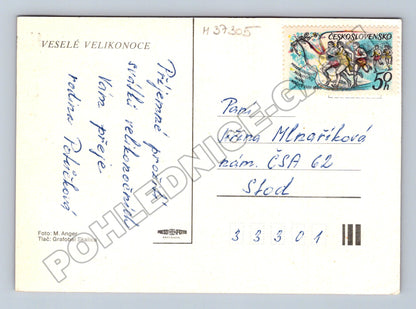 H 37305
VESELÉ VELIKONOCE
ČESKOSLOVENSKO
50h
Příjemné prožití
svátků velikonočních
Vám přeje
rodina
Paní
Mlnaříková
nám. ČSA 62
Stod
3 3 3 0 1
Foto: M. Anger
Tisk: Grafotisk
POHLEDNICE